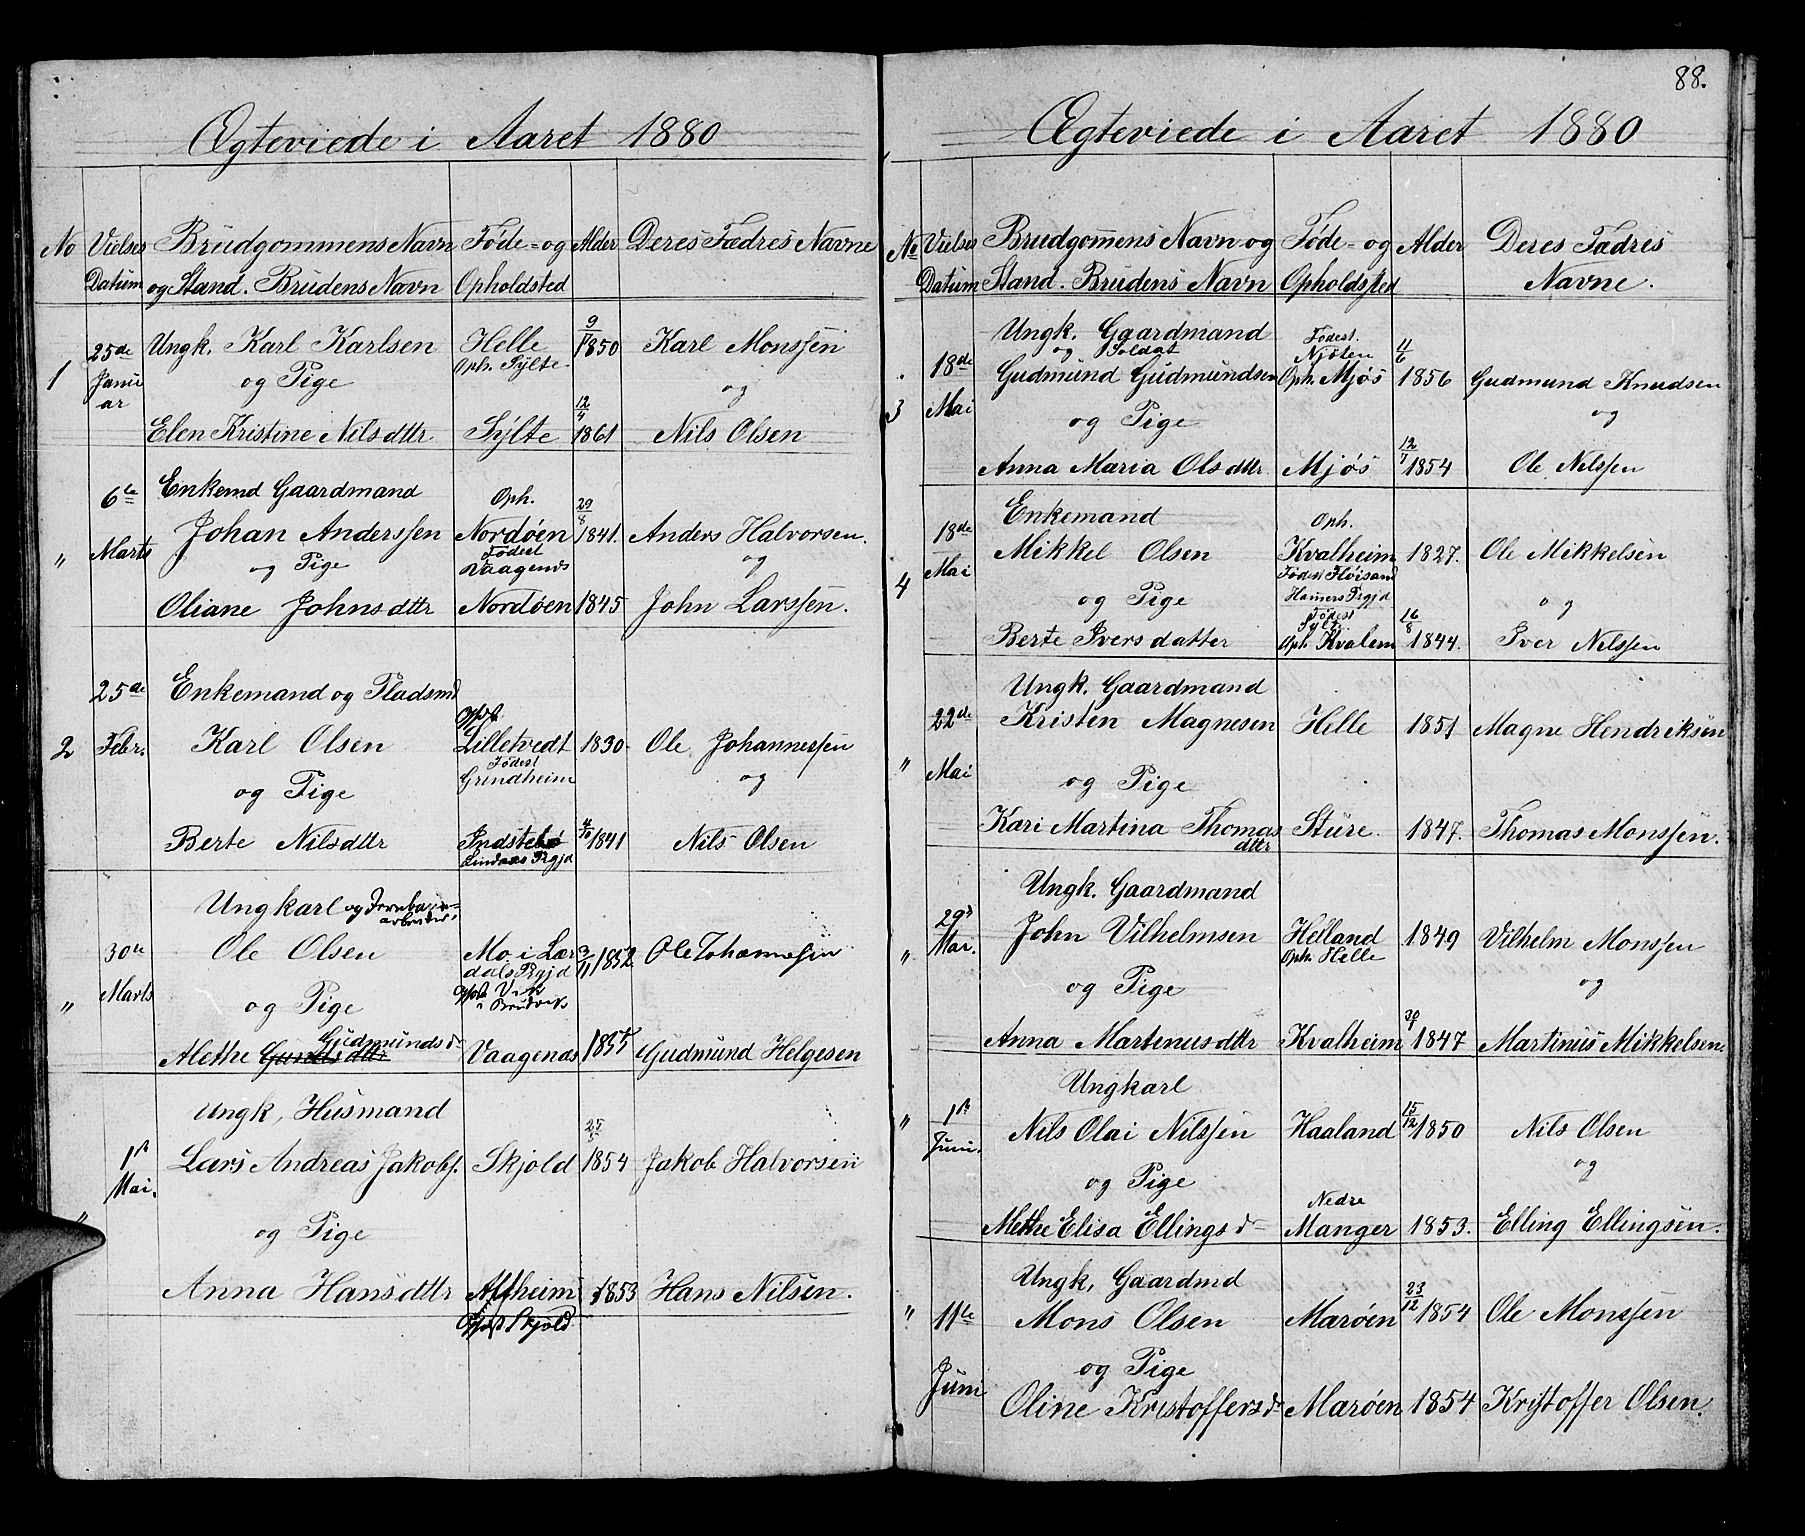 Ægteviede i Aaret 1880
No Vielses Brudgommens Navn Føde- og Alder Deres Fædres Navne
Datum og Stand. Brudens Navn Opholdsted
1 25de Januar Ungk. Karl Karlsen Helle Oph. Sylte 9/1 1850 Karl Monssen
og Pige og
Elen Kristine Nilsdttr Sylte 12/4 1861 Nils Olsen
" 6te Marts Enkemd Gaardmand
Johan Anderssen Oph. Nordøen 29/8 1841. Anders Halvorsen.
og Pige Fødest Vaagenes og
Oliane Johnsdttr Nordøen 1845 John Larssen.
2 25de Febr. Enkemand og Pladsmd
Karl Olsen Lilletvedt 1830 Ole Johannessen
og Pige Fødest Grindheim og
Berte Nilsdttr Indstebø Lindaas Prgjd 1841 Nils Olsen
" 30te Marts Ungkarl og Jernbanearbeider
Ole Olsen Mo i Lærdals Prgjd 3/11 1852 Ole Johannessen
og Pige Vik i Bruvik
Alethe Gudmundsd Vaagenes 1855 Gudmund Helgesen
" 1st Mai. Ungk, Husmand
Lars Andreas Jakobs. Skjold 25/5 1854 Jakob Halvorsen
og Pige
Anna Hansdttr Alfheim Skjold 1853 Hans Nilsen.
88.
Ægteviede i Aaret 1880
No Vielses Brudgommens Navn og Føde- og Alder Deres Fædres
Datum Stand. Brudens Navn Opholdsted Navne.
3 18de Mai Ungk. Gaardmand
og Soldat Fødest. Njøten
Gudmund Gudmundsen Oph. Mjøs 11/6 1856 Gudmund Knudsen
og Pige og
Anna Maria Olsdttr Mjøs 12/7 1854 Ole Nilssen
4 18de Mai Enkemand Oph.
Mikkel Olsen Kvalheim 1827. Ole Mikkelsen
og Pige Fødest Fløisand Hamers Prgjd og
Berte Iversdatter Fødest Sylte Oph. Kvalem 16/8 1844. Iver Nilssen
" 22de Mai Ungk. Gaardmand
Kristen Magnesen Helle 1851 Magne Hendriksen
og Pige
Kari Martina Thomasdttr Sture. 1847. Thomas Monssen.
" 29d Mai. Ungk. Gaardmand
John Vilhelmsen Helland Oph. Helle 1849 Vilhelm Monssen
og Pige og
Anna Martinusdttr Kvalheim 1847 Martinus Mikkelsen.
" 1st Juni. Ungkarl
Nils Olai Nilssen Haaland 15/12 1850 Nils Olsen
og Pige og
Methe Elisa Ellingsd Nedre Manger 1853. Elling Ellingsen.
" 11te Juni Ungk, Gaardmd
Mons Olsen Marøen 23/12 1854 Ole Monssen
og Pige
Oline Kristoffersd Marøen 1854 Kristoffer Olsen.